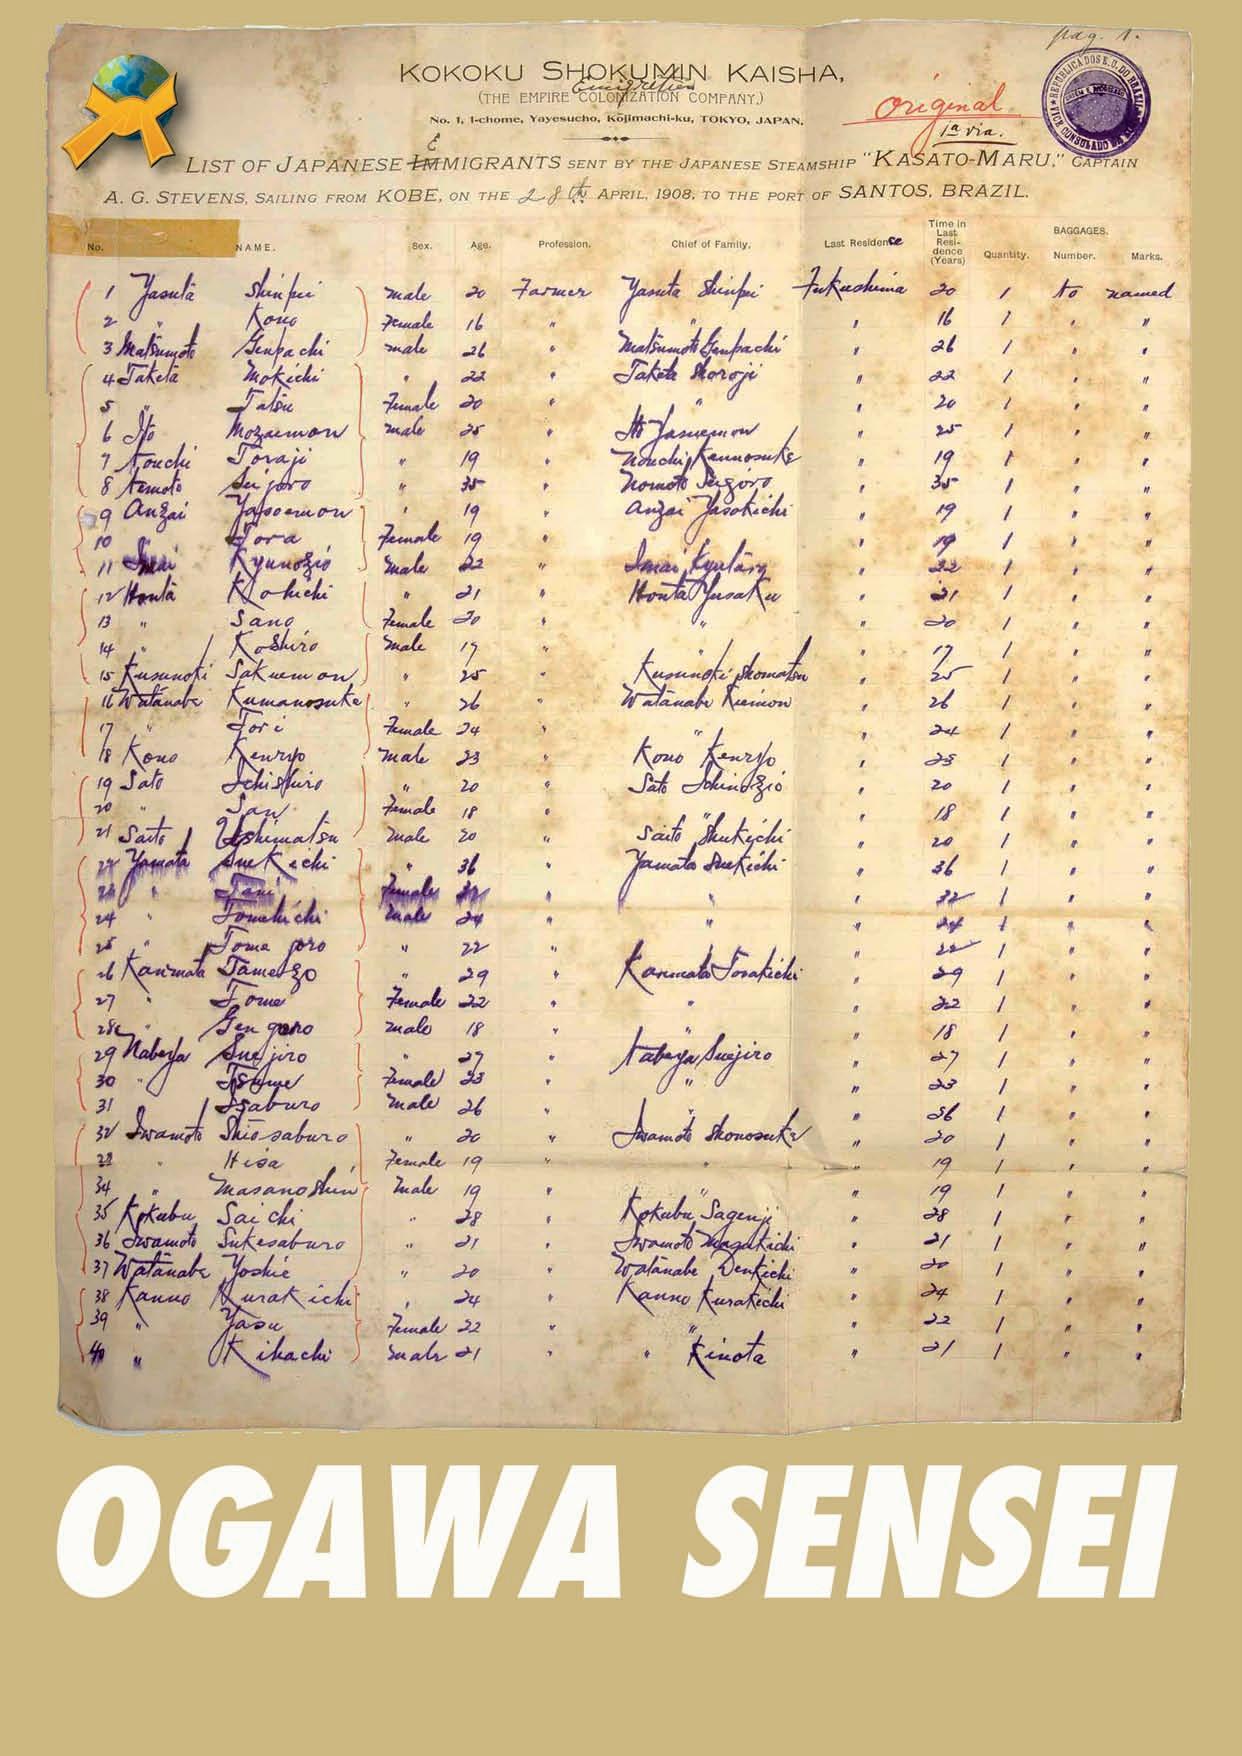 pag. 1.
KOKOKU SHOKUMIN KAISHA,
Emigration
(THE EMPIRE COLONIZATION COMPANY.)
No. 1, 1-chome, Yayesucho, Kojimachi-ku, TOKYO, JAPAN.
Original
1ª via.
REPUBLICA DOS E. U. DO BRAZIL
LIST OF JAPANESE EMMIGRANTS SENT BY THE JAPANESE STEAMSHIP "KASATO-MARU," CAPTAIN
A. G. STEVENS, SAILING FROM KOBE, ON THE 28th APRIL, 1908, TO THE PORT OF SANTOS, BRAZIL.
No. NAME. Sex. Age. Profession. Chief of Family. Last Residence Time in Last Residence (Years) BAGGAGES. Quantity. Number. Marks.
1 Yasuta Shinpei male 20 Farmer Yasuta Shinpei Fukushima 20 1 No named
2 " Kono Female 16 " " " 16 1 " "
3 Matsumoto Genpachi male 26 " Matsumoto Genpachi " 26 1 " "
4 Taketa Mokichi " 22 " Taketa Shoroji " 22 1 " "
5 " Tatsu Female 20 " " " 20 1 " "
6 Ito Mozaemon male 25 " Ito Yasuemon " 25 1 " "
7 Nouchi Toraji " 19 " Nouchi Kennosuke " 19 1 " "
8 Nemoto Suijoro " 35 " Nomoto Suigoro " 35 1 " "
9 Anzai Yasoemon " 19 " Anzai Yasokichi " 19 1 " "
10 Tora Female 19 " 19 1 " "
11 Imai Kyunozio male 22 " Imai Kyutaro " 22 1 " "
12 Honta Kohichi " 21 " Honta Yusaku " 21 1 " "
13 " Sano Female 20 " " " 20 1 " "
14 " Koshiro male 17 " " " 17 1 " "
15 Kusunoki Sakuemon " 25 " Kusunoki Shomatsu " 25 1 " "
16 Watanabe Kumanosuke " 26 " Watanabe Kiemon " 26 1 " "
17 " Tori Female 24 " " " 24 1 " "
18 Kono Kenryo male 23 " Kono Kenryo " 23 1 " "
19 Sato Ichishiro " 20 " Sato Ichinozio " 20 1 " "
20 " San Female 18 " " " 18 1 " "
21 Saito Ushimatsu male 20 " Saito Shukichi " 20 1 " "
22 Yamata Suekichi " 36 " Yamata Suekichi " 36 1 " "
23 " Tani Female 32 " " " 32 1 " "
24 " Tomekichi male 24 " " " 24 1 " "
25 " Tome joro " 22 " " 22 1 " "
26 Kanimata Tamezo " 29 " Kanimata Torakichi " 29 1 " "
27 " Tome Female 22 " " " 22 1 " "
28 " Gengoro male 18 " " " 18 1 " "
29 Nabeya Suejiro " 27 " Nabeya Suejiro " 27 1 " "
30 " Female 23 " " " 23 1 " "
31 Isaburo male 26 " " " 26 1 " "
32 Iwamoto Shiosaburo " 20 " Iwamoto Shonosuke " 20 1 " "
33 " Hisa Female 19 " " " 19 1 " "
34 " Masanoshin male 19 " " " 19 1 " "
35 Kokubu Saichi " 28 " Kokubu Sagenji " 28 1 " "
36 Iwamoto Sukesaburo " 21 " Iwamoto Masukichi " 21 1 " "
37 Watanabe Yoshie " 20 " Watanabe Denkichi " 20 1 " "
38 Kanno Kurakichi " 24 " Kanno Kurakichi " 24 1 " "
39 " Yasu Female 22 " " " 22 1 " "
40 " Kihachi male 21 " " Kinota " 21 1 " "
OGAWA SENSEI